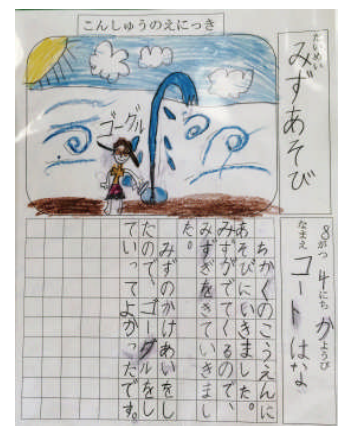 こんしゅうのえにっき
だいめい
みずあそび
8がつ4にちかようび
なまえ コートはな
ゴーグル
ちかくのこうえんに
あそびにいきました。
みずがでてくるので、
みずぎをきていきまし
た。
みずのかけあいをし
たので、ゴーグルをし
ていってよかったです。